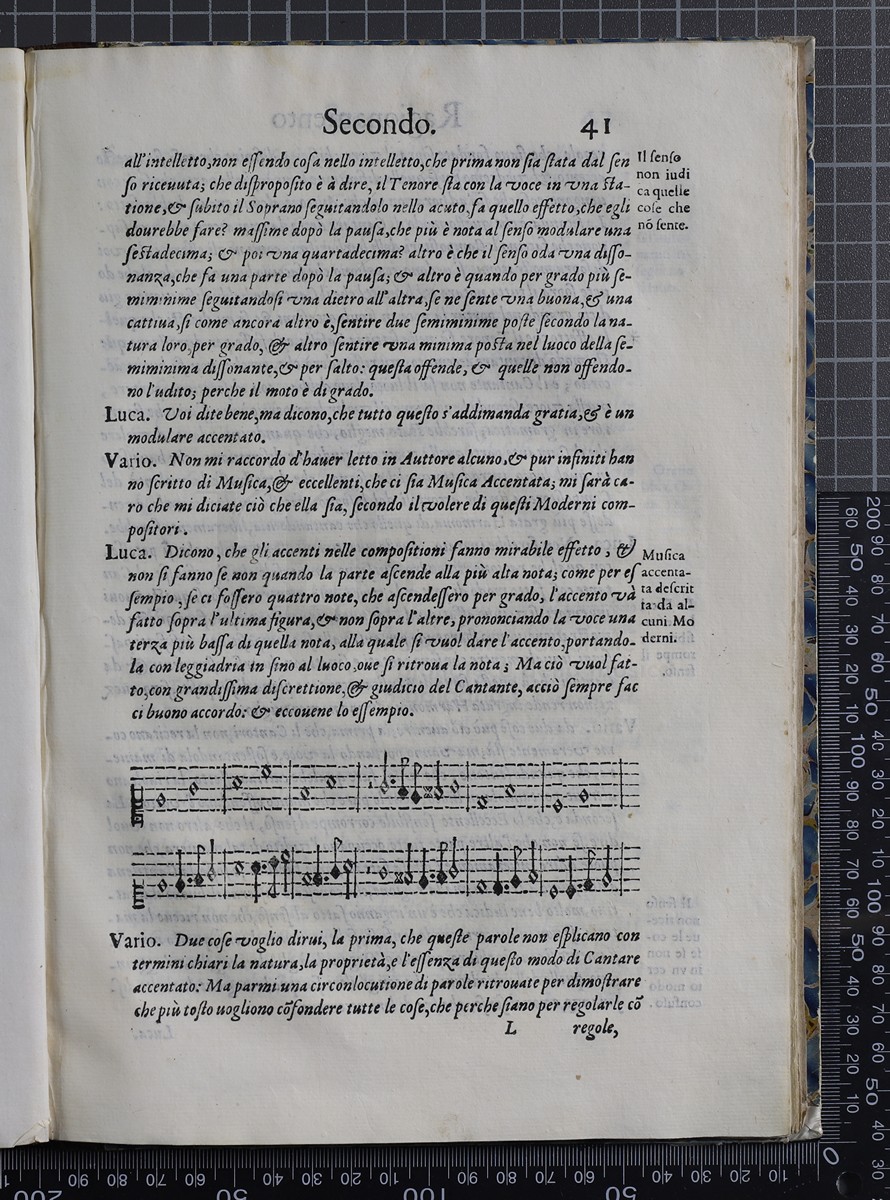 Secondo. 41
all'intelletto, non essendo cosa nello intelletto, che prima non sia stata dal sen
so riceuuta; che disproposito è à dire, il Tenore sta con la voce in vna sta-
tione, & subito il Soprano seguitandolo nello acuto, fa quello effetto, che egli
dourebbe fare? massime dopò la pausa, che più è nota al senso modulare una
sestadecima; & poi vna quartadecima? altro è che il senso oda vna disso-
nanza, che fa una parte dopò la pausa; & altro è quando per grado più se-
miminime seguitandosi vna dietro all'altra, se ne sente vna buona, & una
cattiua, si come ancora altro è, sentire due semiminime poste secondo la na-
tura loro, per grado, & altro sentire vna minima posta nel luoco della se-
miminima dissonante, & per salto: questa offende, & quelle non offendo-
no l'udito; perche il moto è di grado.
Il senso
non iudi
ca quelle
cose che
nõ sente.
Luca. Voi dite bene, ma dicono, che tutto questo s'addimanda gratia, & è un
modulare accentato.
Vario. Non mi raccordo d'hauer letto in Auttore alcuno, & pur infiniti han
no scritto di Musica, & eccellenti, che ci sia Musica Accentata; mi sarà ca-
ro che mi diciate ciò che ella sia, secondo il volere di questi Moderni com-
positori.
Luca. Dicono, che gli accenti nelle compositioni fanno mirabile effetto, &
non si fanno se non quando la parte ascende alla più alta nota; come per es
sempio, se ci fossero quattro note, che ascendessero per grado, l'accento và
fatto sopra l'ultima figura, & non sopra l'altre, prononciando la voce una
terza più bassa di quella nota, alla quale si vuol dare l'accento, portando-
la con leggiadria in sino al luoco, oue si ritroua la nota; Ma ciò vuol fat-
to, con grandissima discrettione, & giudicio del Cantante, acciò sempre fac
ci buono accordo: & eccouene lo essempio.
Musica
accenta-
ta descrit
ta da al-
cuni Mo
derni.
Vario. Due cose voglio dirui, la prima, che queste parole non esplicano con
termini chiari la natura, la proprietà, e l'essenza di questo modo di Cantare
accentato: Ma parmi una circonlocutione di parole ritrouate per dimostrare
che più tosto uogliono cõfondere tutte le cose, che perche siano per regolarle cõ
L regole,